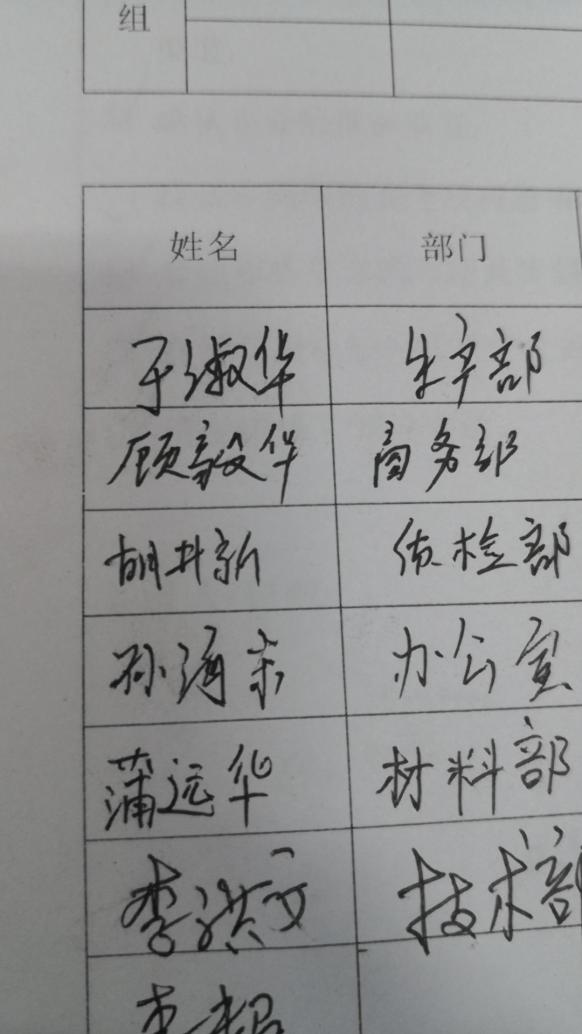 组
姓名 部门
于淑华 生产部
顾毅华 商务部
胡井新 质检部
孙海东 办公室
蒲远华 材料部
李洪文 技术部